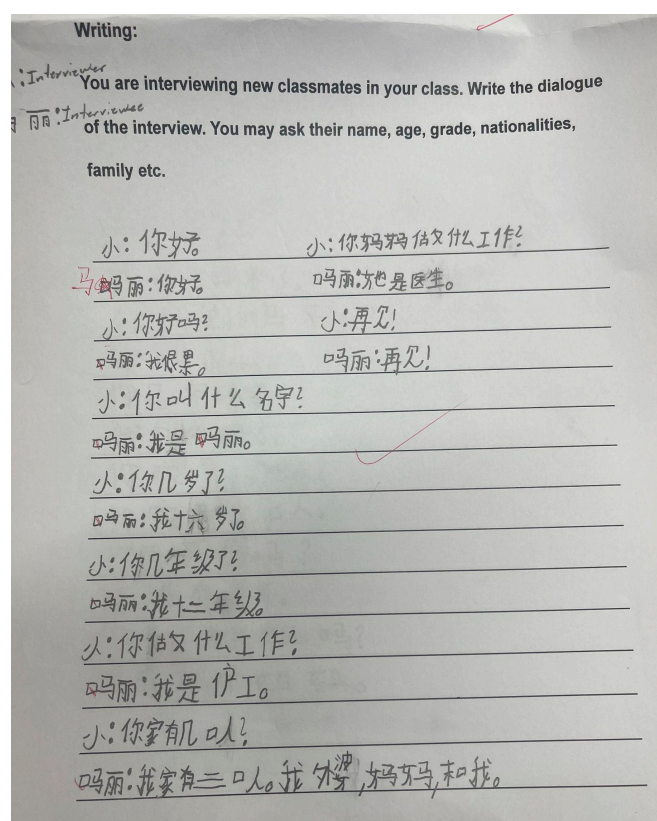 Writing:
:Interviewer
You are interviewing new classmates in your class. Write the dialogue
丽:Interviewee
of the interview. You may ask their name, age, grade, nationalities,
family etc.
小:你好。
马
吗丽:你好。
小:你好吗?
吗丽:我很累。
小:你叫什么名字?
吗丽:我是吗丽。
小:你几岁了?
吗丽:我十六岁了。
小:你几年级了?
吗丽:我十二年级。
小:你估又什么工作?
吗丽:我是护工。
小:你家有几口人?
吗丽:我家有三口人。我外婆,妈妈,和我。
小:你妈妈估又什么工作?
吗丽:她是医生。
小:再见!
吗丽:再见!